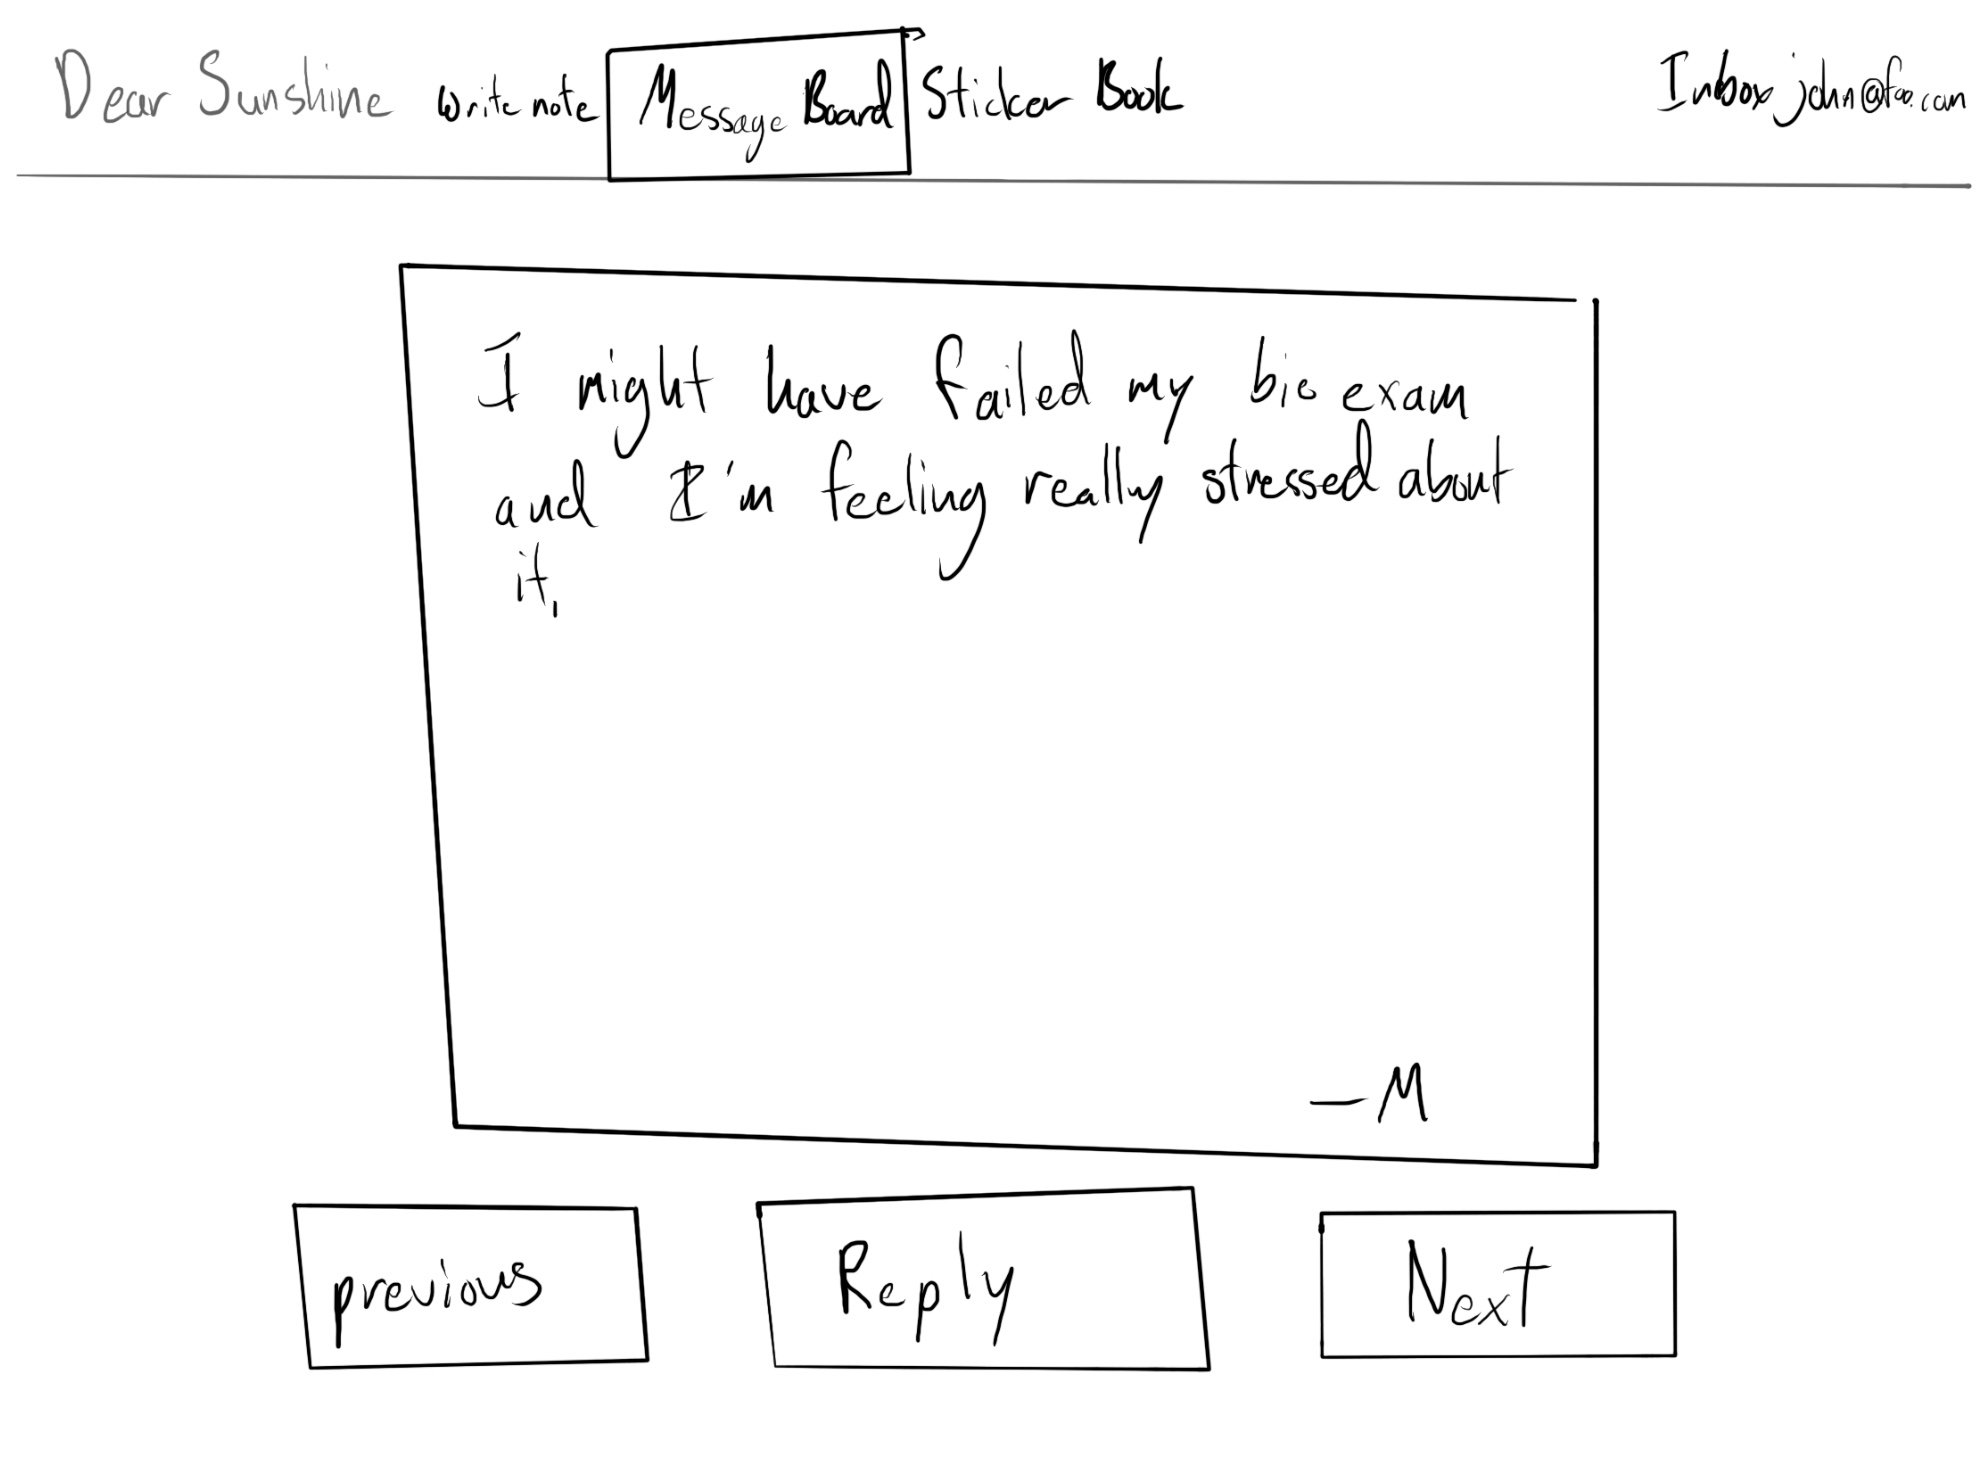 Dear Sunshine write note Message Board Sticker Book Inbox john@foo.com
I might have failed my bio exam
and I'm feeling really stressed about
it.
—M
previous Reply Next